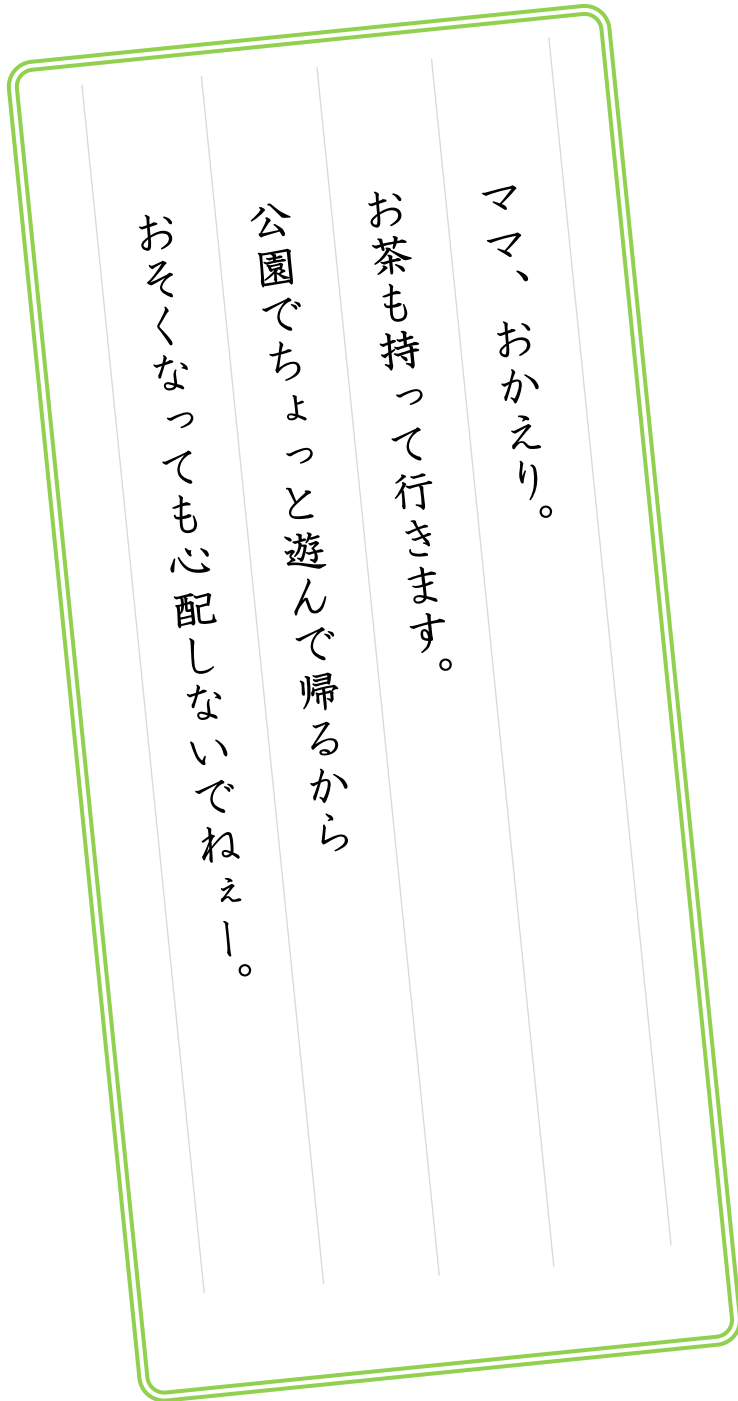 ママ、おかえり。
お茶も持って行きます。
公園でちょっと遊んで帰るから
おそくなっても心配しないでねぇー。